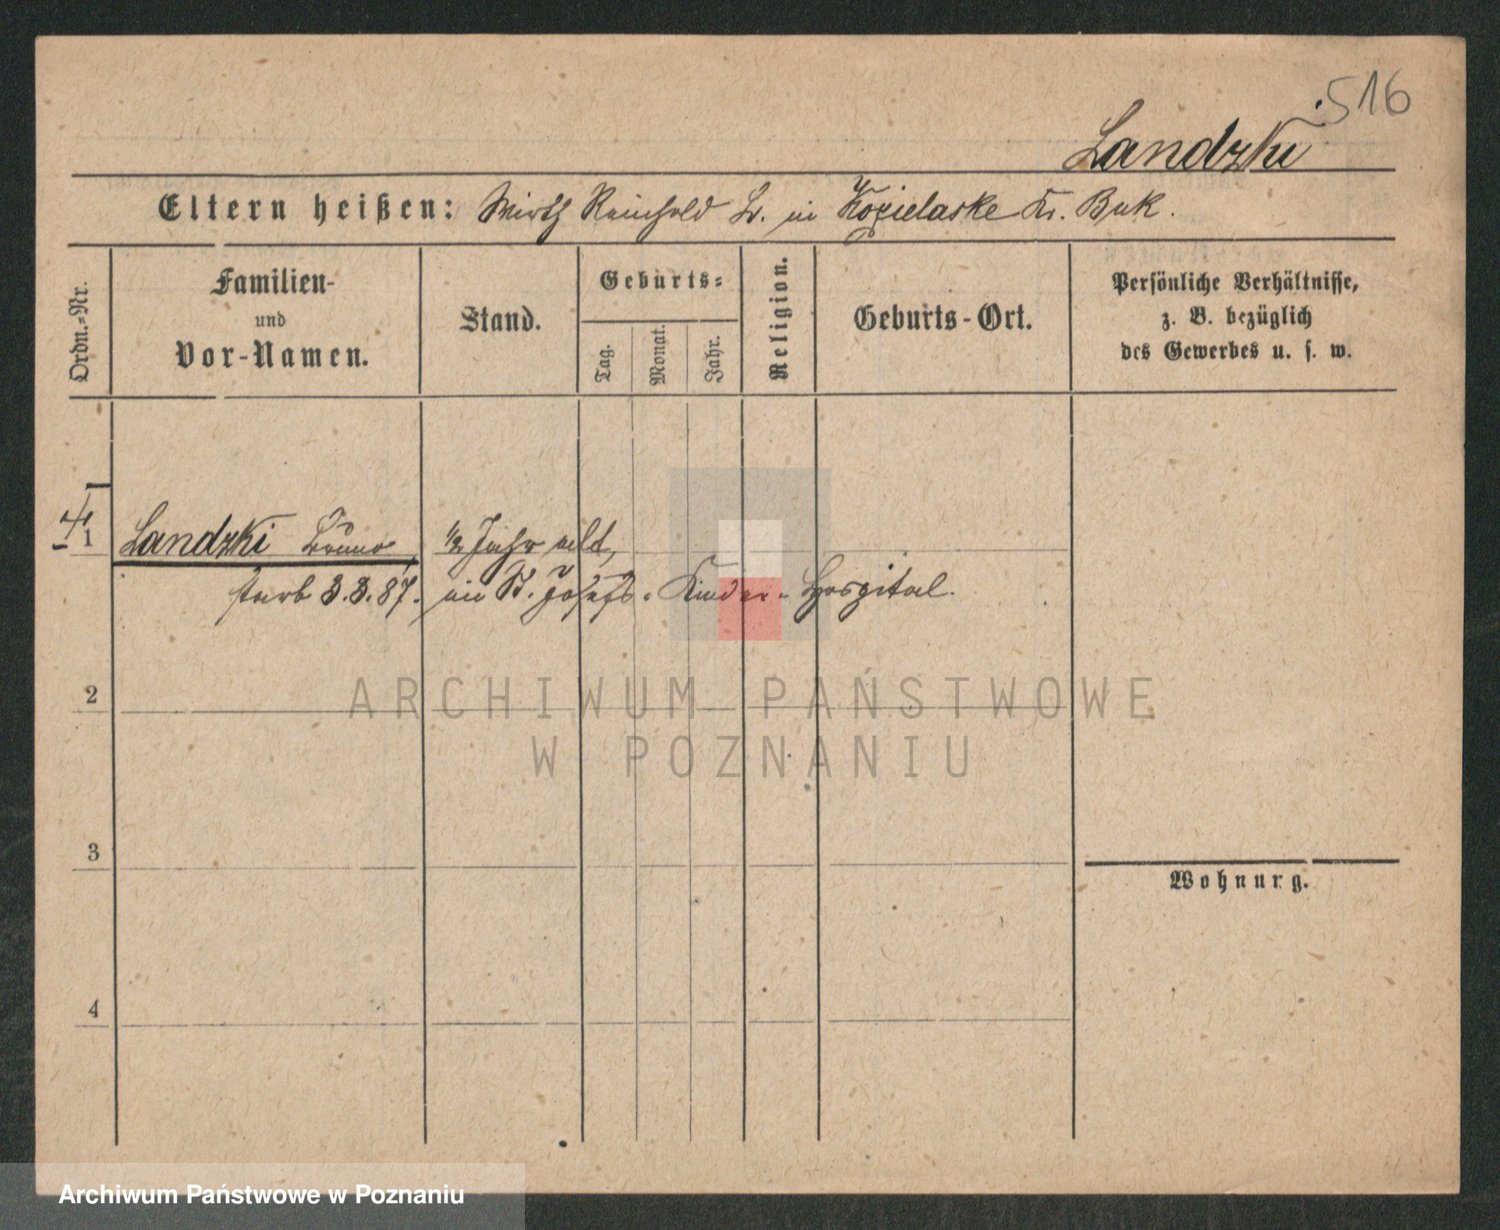 516
Landzki
Eltern heißen: Wirth Reinhold L. in Kozielaske Kr. Buk.
Ordn.-Nr.
Familien-
und
Vor-Namen.
Stand.
Geburts-
Tag.
Monat.
Jahr.
Religion.
Geburts-Ort.
Persönliche Verhältnisse,
z. B. bezüglich
des Gewerbes u. s. w.
1
Landzki Bruno ½ Jahr alt,
starb 3.3.87. im St. Josefs-Kinder-Hospital.
2
3
4
Wohnurg.
ARCHIWUM PAŃSTWOWE
W POZNANIU
Archiwum Państwowe w Poznaniu